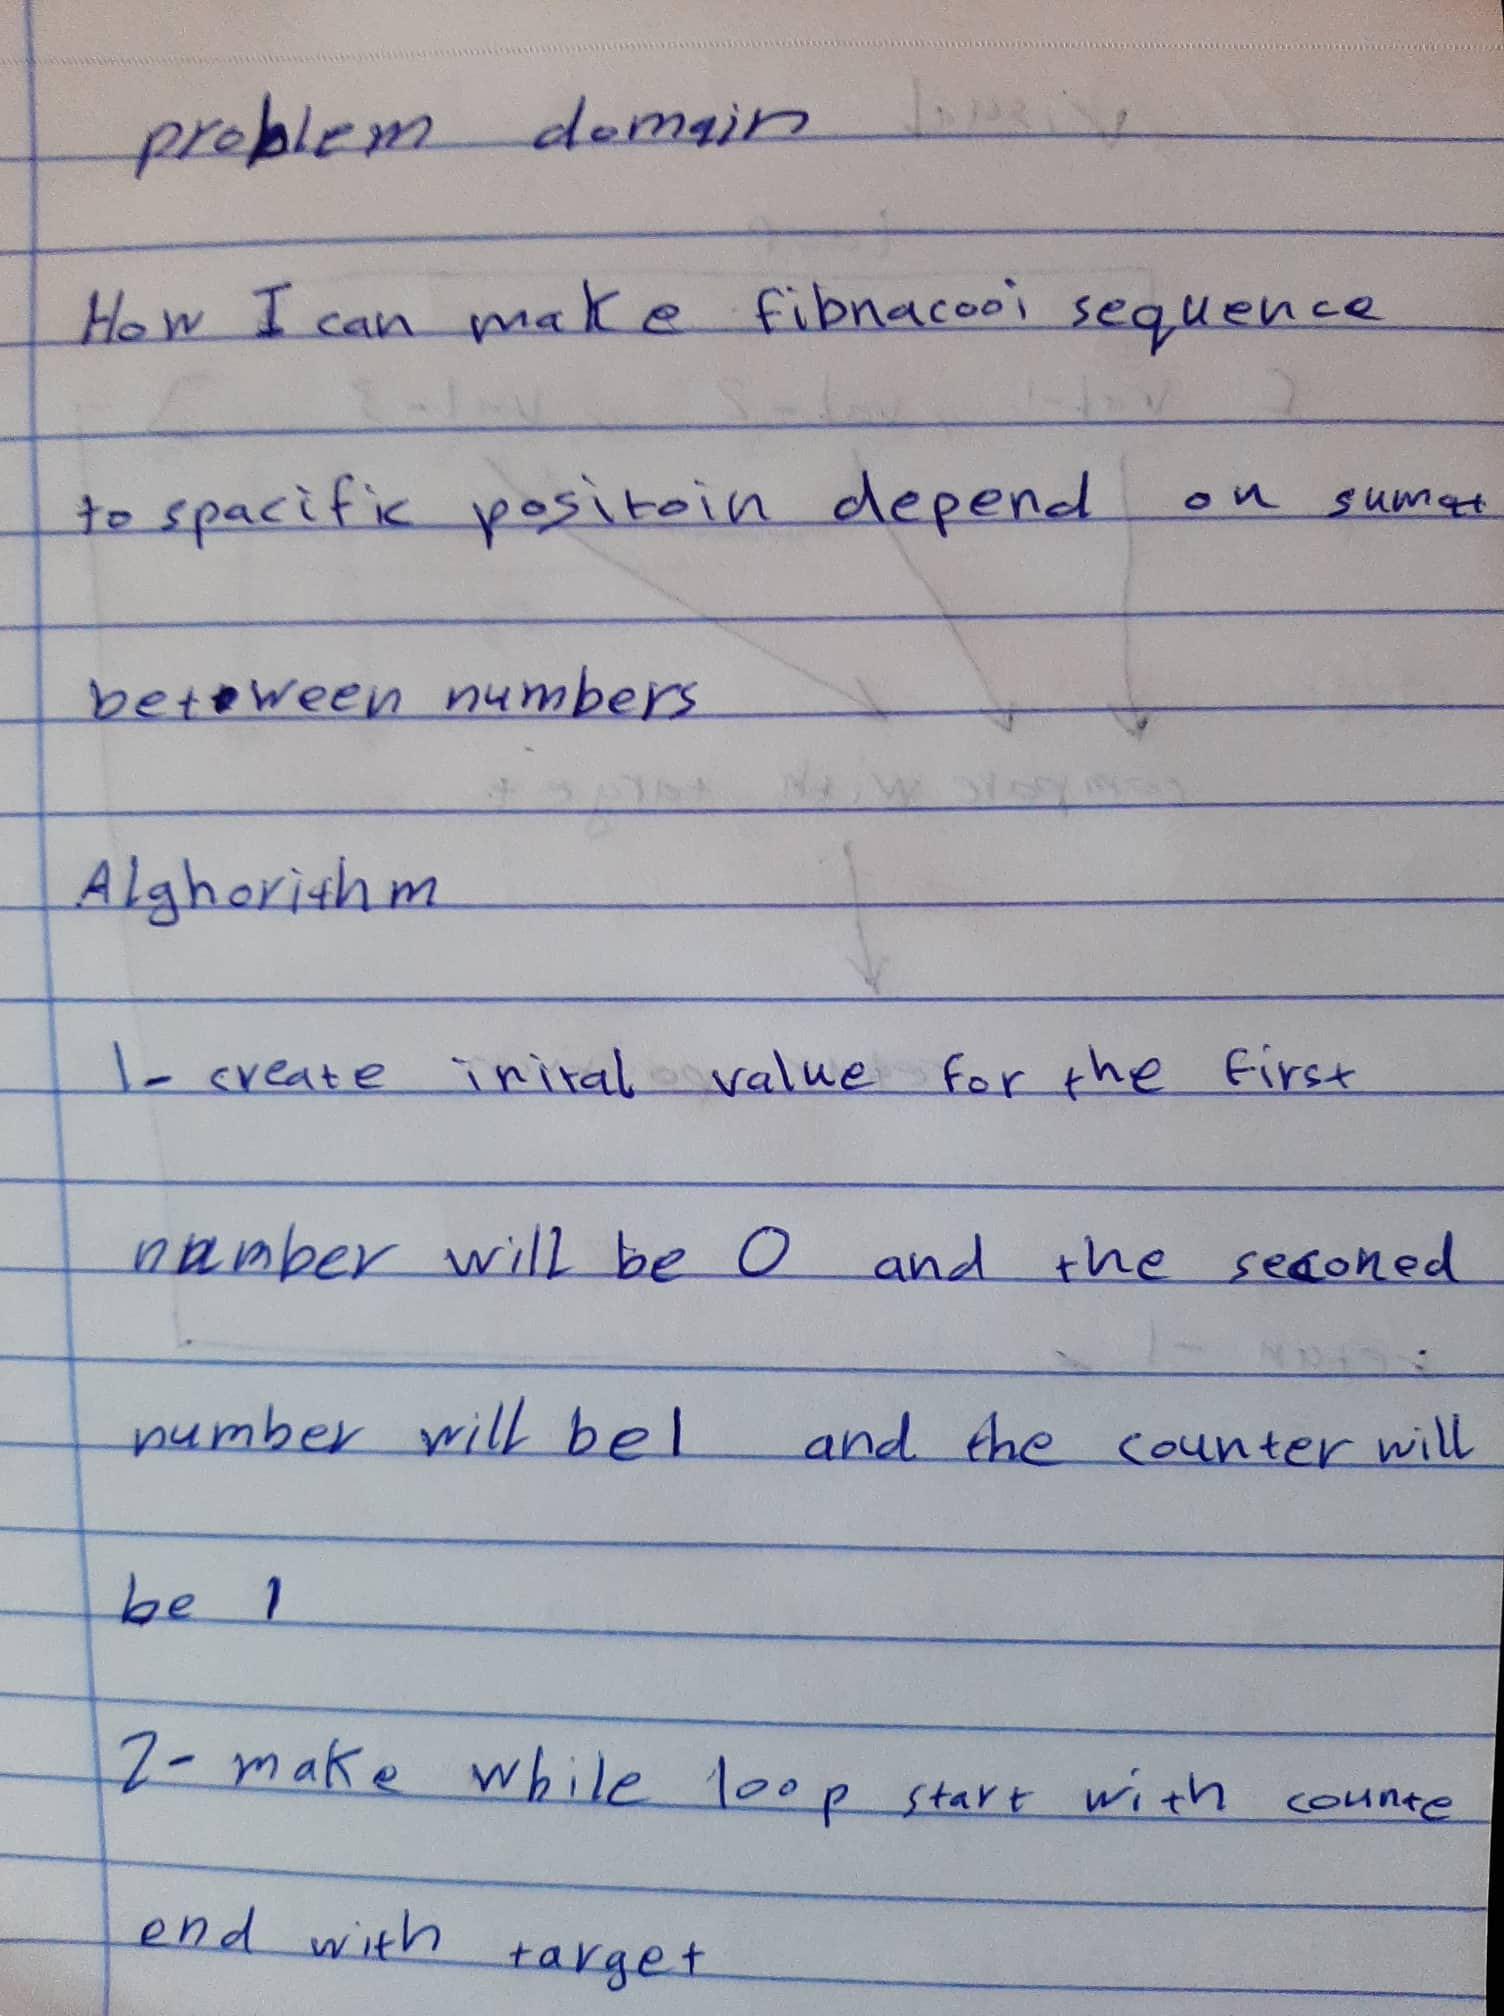 problem domain
How I can make fibnacooi sequence
to spacific positoin depend on sumat
between numbers
Alghorithm
1- create inital value for the first
number will be 0 and the seconed
number will be 1 and the counter will
be 1
2- make while loop start with counte
end with target